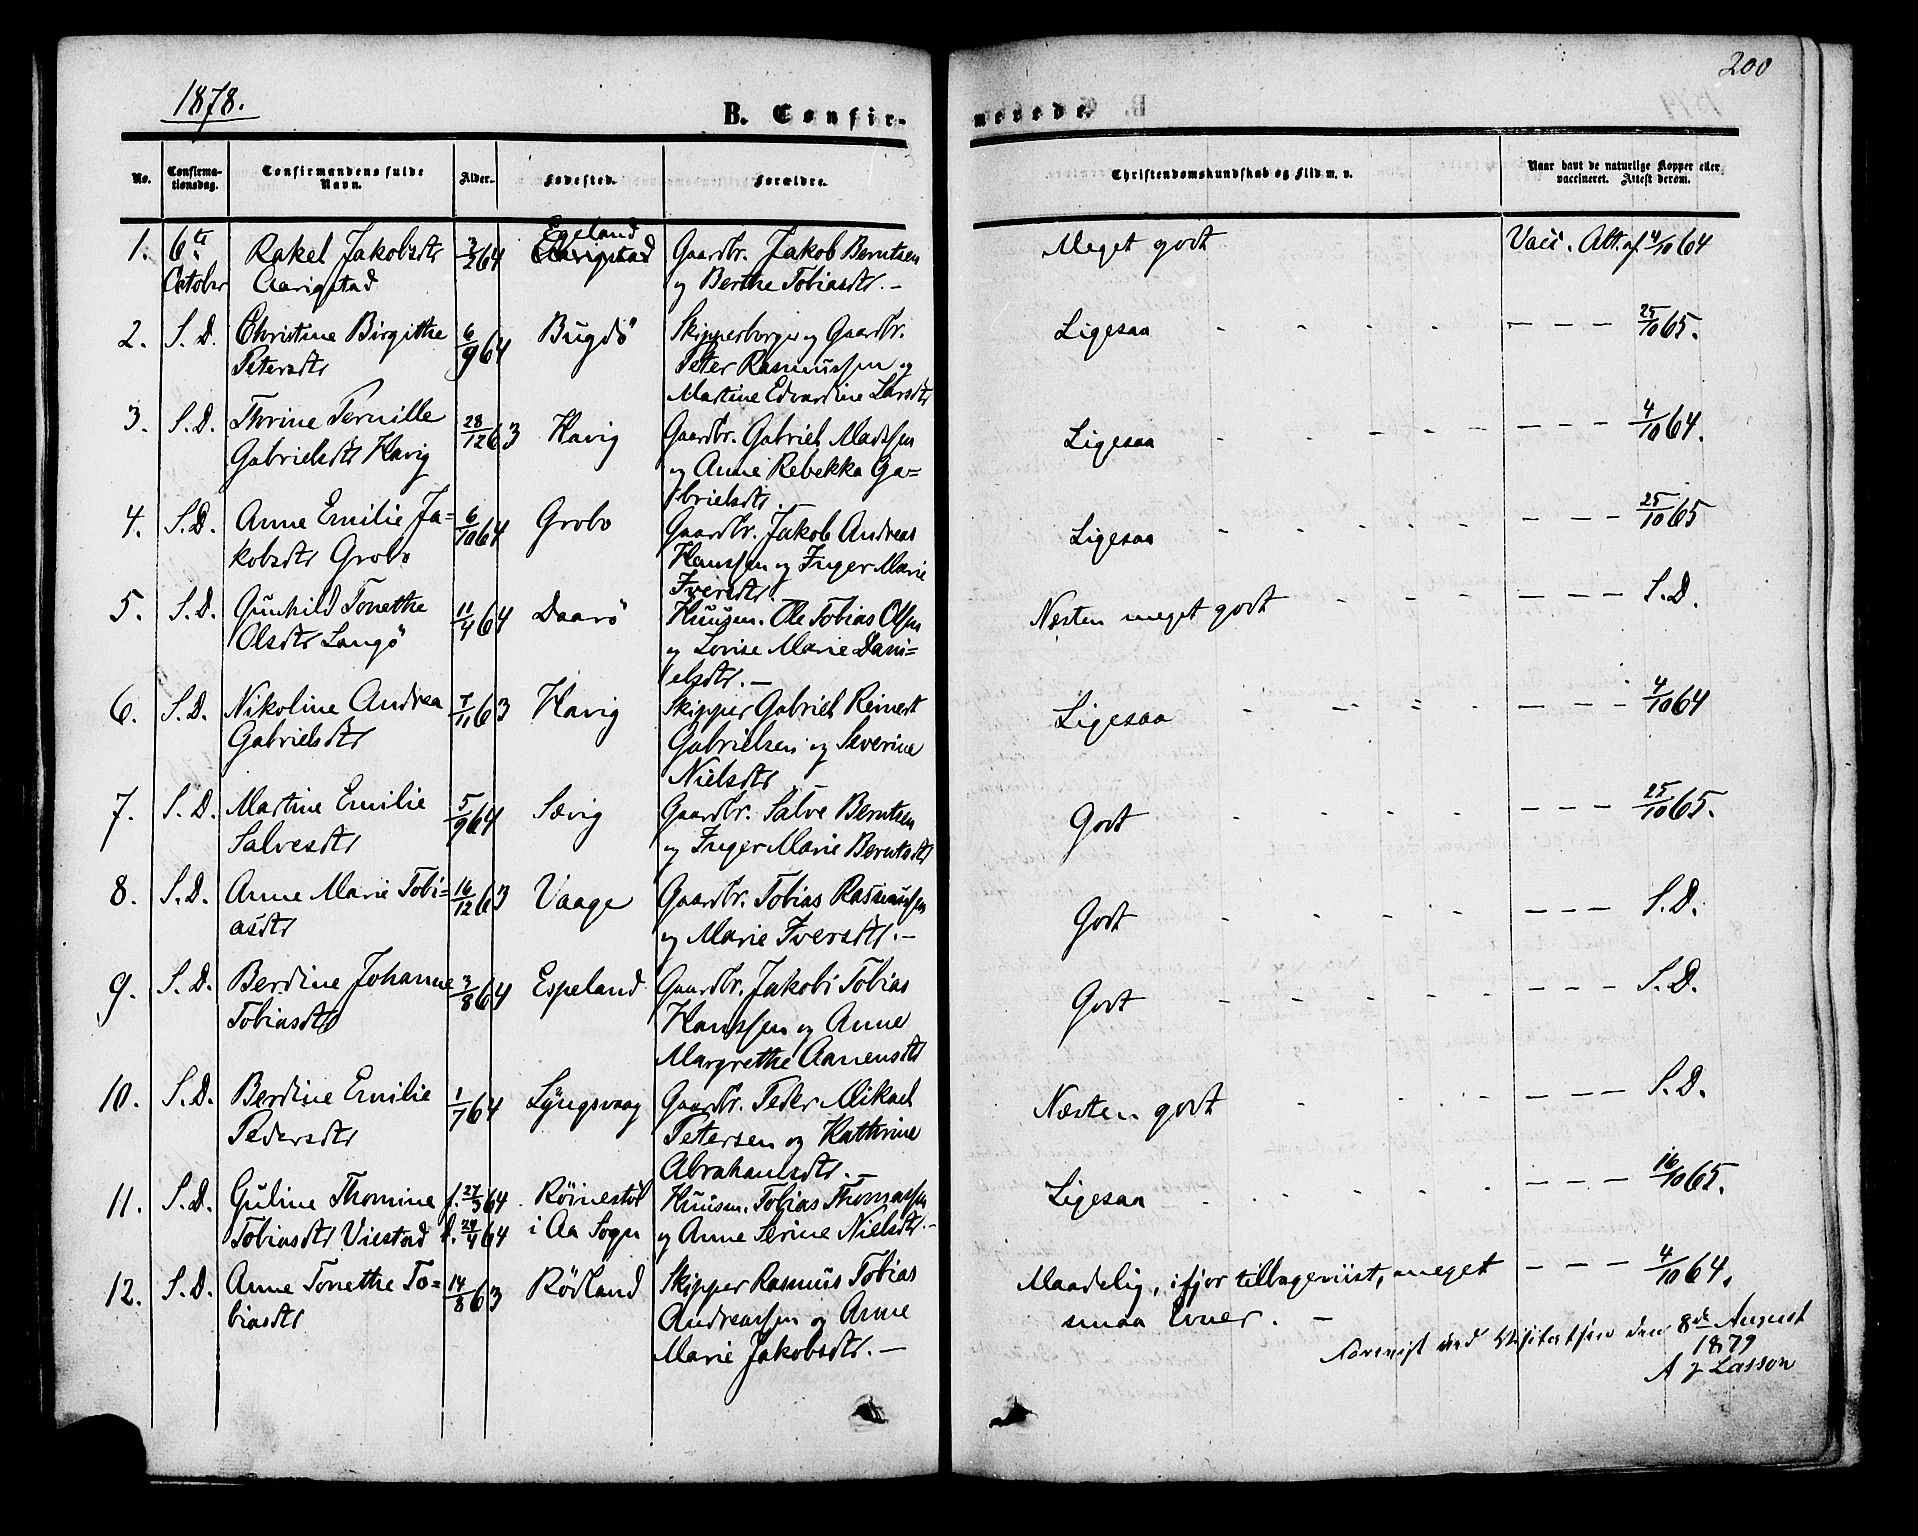 200
1878.
B. Confirmerede.
No.
Confirmationsdag.
Confirmandens fulde Navn.
Alder.
Fødested.
Forældre.
Christendomskundskab og Flid m. v.
Naar havt de naturlige Kopper eller vaccineret. Attest derom.
1. 6te October Rakel Jakobsdtr Aarigstad 3/2 64 Egeland Gaardbr. Jakob Berntsen og Berthe Tobiasdtr. — Meget godt Vacc. Att. af 4/10 64
2. S. D. Christine Birgithe Petersdtr 6/9 64 Bugdö Skipperborger og Gaardbr. Peter Rasmussen og Martine Edvardine Larsdtr Ligesaa - - - - — — — 25/10 65.
3. S. D. Thrine Pernille Gabrielsdtr Havig 28/12 63 Havig Gaardbr. Gabriel Madssen og Anne Rebekka Gabrielsdtr. Ligesaa - - - - — — — 4/10 64.
4. S. D. Anne Emilie Jakobsdtr Grobo 6/10 64 Grobo Gaardbr. Jakob Andreas Hanssen og Inger Marie Iversdtr. Ligesaa - - - - — — — 25/10 65
5. S. D. Gunhild Tonethe Olsdtr Langö 11/4 64 Daarö Huusm. Ole Tobias Olsen og Lovise Marie Danielsdtr. — Næsten meget godt - - - — — — S. D.
6. S. D. Nikoline Andrea Gabrielsdtr 7/11 63 Havig Skipper Gabriel Reinert Gabrielsen og Severine Nielsdtr Ligesaa - - - - — — — 4/10 64
7. S. D. Martine Emilie Salvesdtr 5/9 64 Sævig Gaardbr. Salve Berntsen og Inger Marie Berntsdtr Godt - - - - — — — 25/10 65.
8. S. D. Anne Marie Tobiasdtr 16/12 63 Vaage Gaardbr. Tobias Rasmussen og Marie Iversdtr. — Godt - - - - — — — S. D.
9. S. D. Berdine Johanne Tobiasdtr 3/8 64 Espeland Gaardbr. Jakob Tobias Hanssen og Anne Margrethe Aanensdtr Godt - - - - — — — S. D.
10. S. D. Berdine Emilie Pedersdtr 1/7 64 Lyngsvaag Gaardbr. Peder Mikael Pettersen og Kathrine Abrahamsdtr. — Næsten godt - - - — — — S. D.
11. S. D. Guline Thomine Tobiasdtr Viestad f. 27/3 64 d. 24/4 64 Röinestöl i Aa Sogn Huusm. Tobias Thomassen og Anne Serine Nielsdtr. — Ligesaa - - - - — — — 16/10 65.
12. S. D. Anne Tonethe Tobiasdtr 14/8 63 Rödland Skipper Rasmus Tobias Andreassen og Anne Marie Jakobsdtr. — Maadelig, ifjor tilbageviist, meget smaa Evner. — — — — 4/10 64.
ved Visitatsen den 8de August
1879
A J Lasson